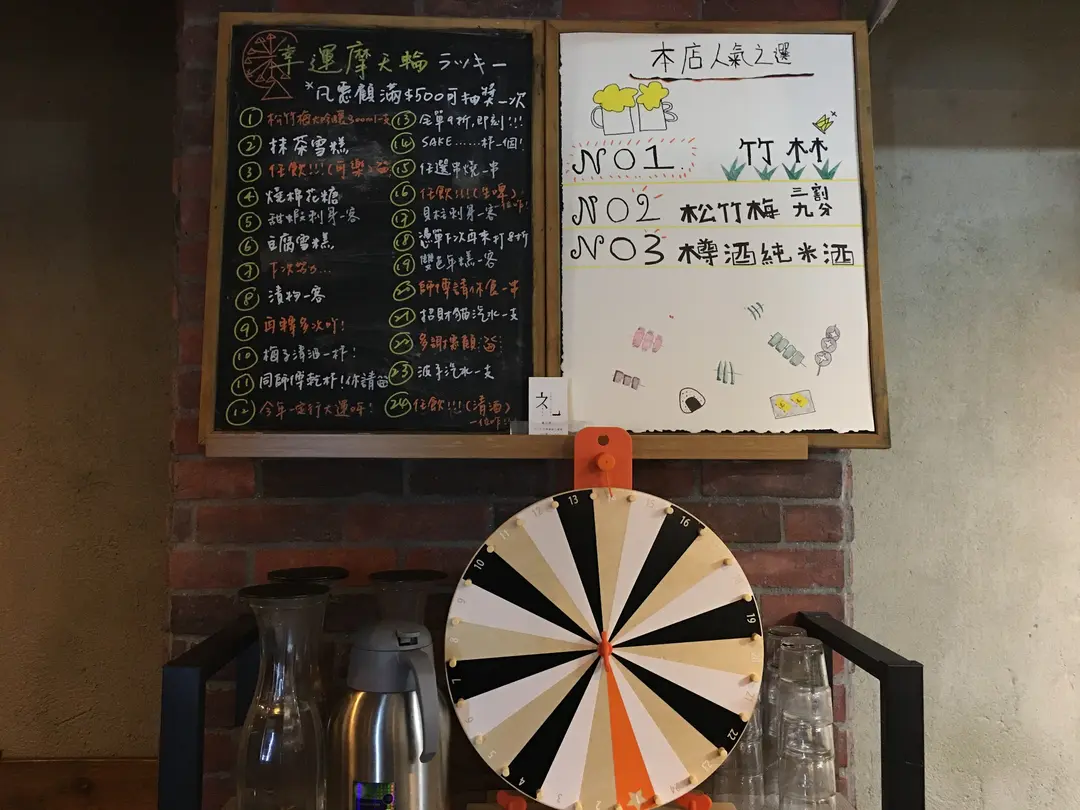 幸運摩天輪 ラッキー
*凡惠顧滿$500可抽獎一次
① 松竹梅大吟釀300ml一支
② 抹茶雪糕
③ 任飲!!!(可樂)
④ 燒棉花糖
⑤ 甜蝦刺身一客
⑥ 豆腐雪糕
⑦ 下次努力...
⑧ 漬物一客
⑨ 再轉多次吖!
⑩ 梅子清酒一杯!
⑪ 同師傅乾杯!你請
⑫ 今年一定行大運呀!
⑬ 全單9折,即刻!!!
⑭ SAKE......杯一個!
⑮ 任選串燒一串
⑯ 任飲!!!(生啤)
一位咋!
⑰ 貝柱刺身一客
⑱ 憑單下次再來打8折
⑲ 雙色年糕一客
⑳ 師傅請你食一串
㉑ 招財貓汽水一支
㉒ 多謝惠顧
㉓ 波子汽水一支
㉔ 任飲!!!(清酒)
一位咋!!
本店人氣之選
NO1 竹林
NO2 松竹梅 三割九分
NO3 樽酒純米酒
礼
13
16
10
19
7
22
4